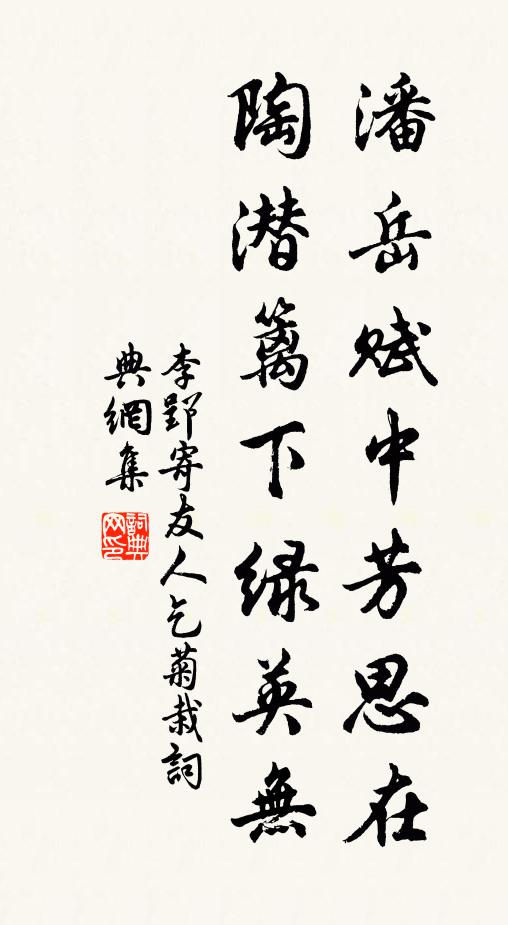 潘岳賦中芳思在
陶潜籬下绿英無
李郢寄友人乞菊栽詞
典網集
詞典网印